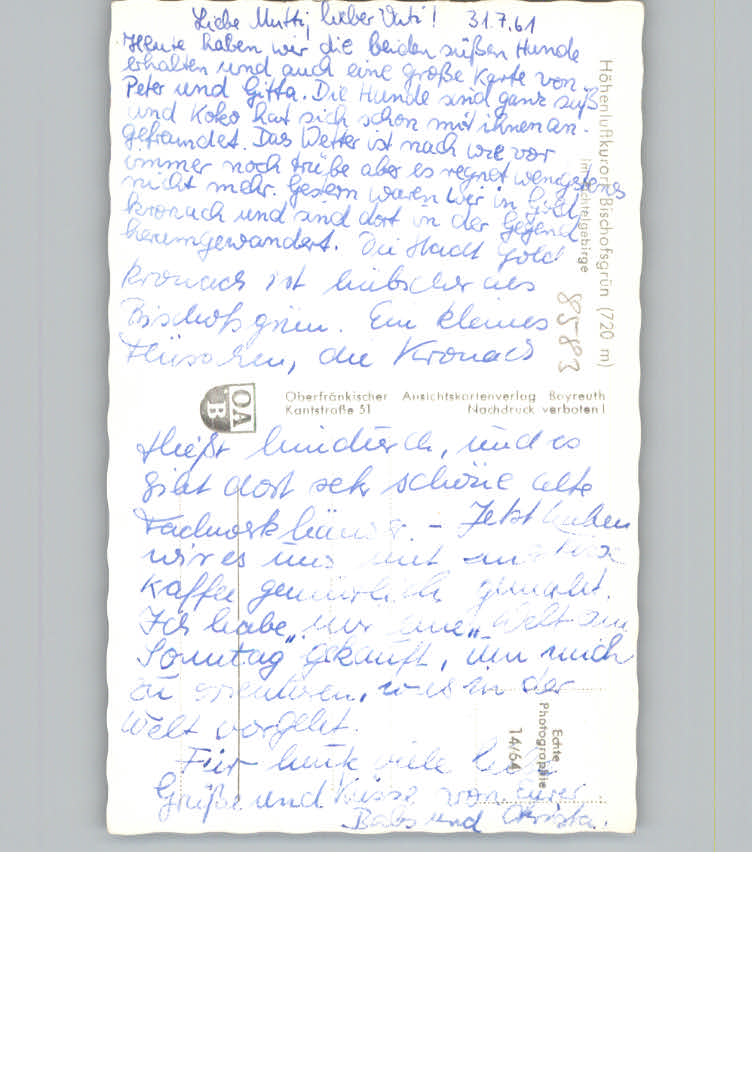 Liebe Mutti, lieber Vati! 31.7.61
Heute haben wir die beiden süßen Hunde
erhalten und auch eine große Karte von
Peter und Gitta. Die Hunde sind ganz süß
und Koko hat sich schon mit ihnen an-
gefreundet. Das Wetter ist nach wie vor
immer noch trübe aber es regnet wenigstens
nicht mehr. Gestern waren wir in Gold
kronach und sind dort in der Gegend
herumgewandert. Die Stadt Gold
kronach ist hübscher als
Bischofsgrün. Ein kleines
Flüsschen, die Kronach
fließt hindurch, und es
gibt dort sehr schöne alte
Fachwerkhäuser. – Jetzt haben
wir es uns mit
Kaffee gemütlich gemacht.
Ich habe mir eine „Welt am
Sonntag" gekauft, um mich
zu orientieren, was in der
Welt vorgeht.
Für heute viele liebe
Grüße und Küsse von Eurer
Babs und Christa.
Höhenluftkurort Bischofsgrün (720 m)
im Fichtelgebirge
85-83
OA
B
Oberfränkischer Ansichtskartenverlag Bayreuth
Kantstraße 51 Nachdruck verboten!
Echte
Photographie
14/64